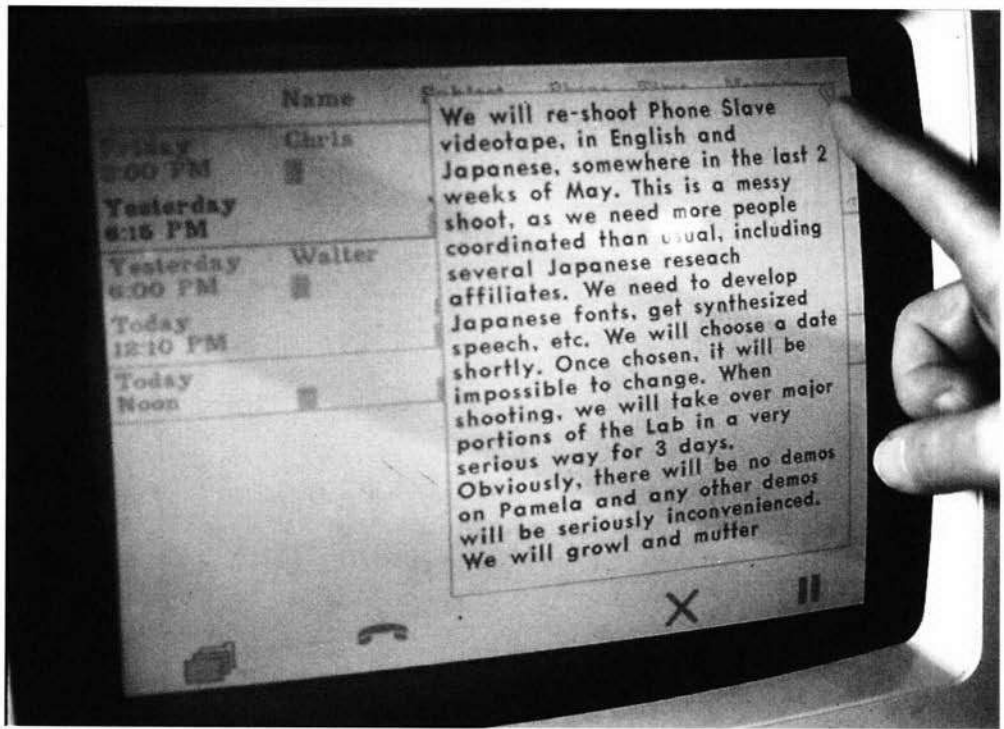 Name
Friday
Chris
Yesterday
6:15 PM
Yesterday
Walter
6:00 PM
Today
12:10 PM
Today
Noon
We will re-shoot Phone Slave
videotape, in English and
Japanese, somewhere in the last 2
weeks of May. This is a messy
shoot, as we need more people
coordinated than usual, including
several Japanese reseach
affiliates. We need to develop
Japanese fonts, get synthesized
speech, etc. We will choose a date
shortly. Once chosen, it will be
impossible to change. When
shooting, we will take over major
portions of the Lab in a very
serious way for 3 days.
Obviously, there will be no demos
on Pamela and any other demos
will be seriously inconvenienced.
We will growl and mutter